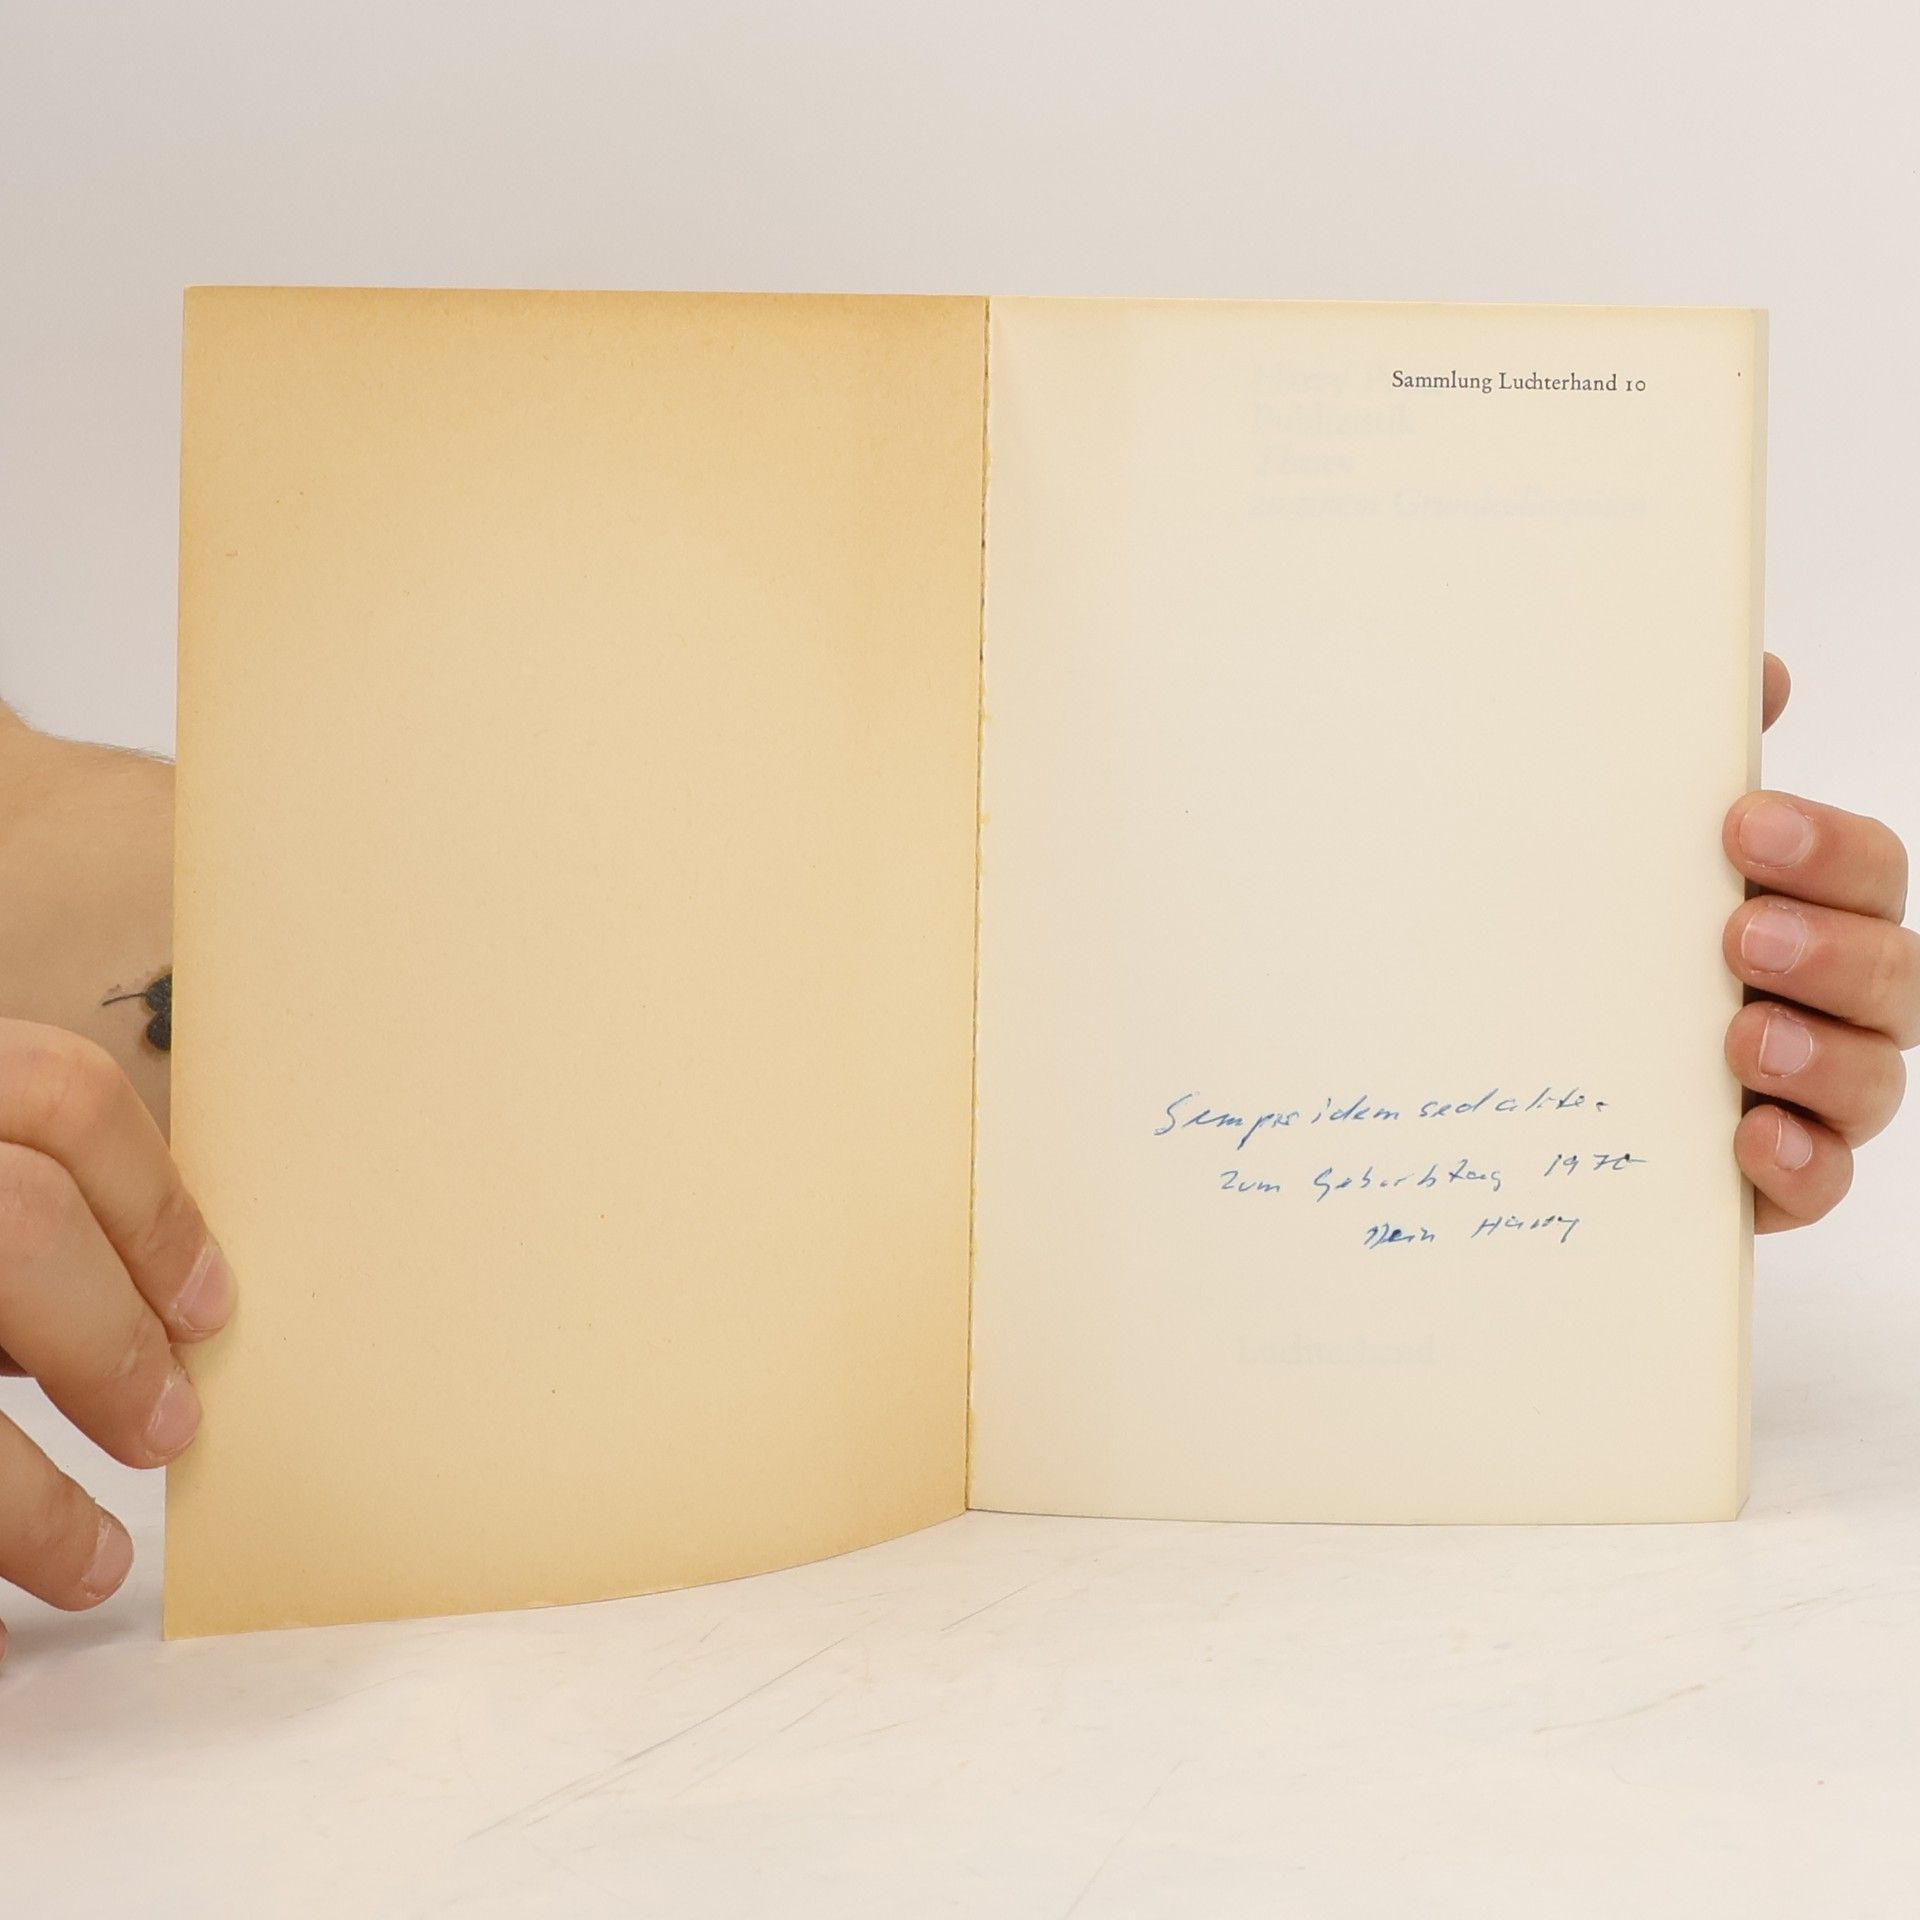 Sammlung Luchterhand 10
Semper idem sed aliter
zum Geburtstag 1970
Dein Harry
Luchterhand